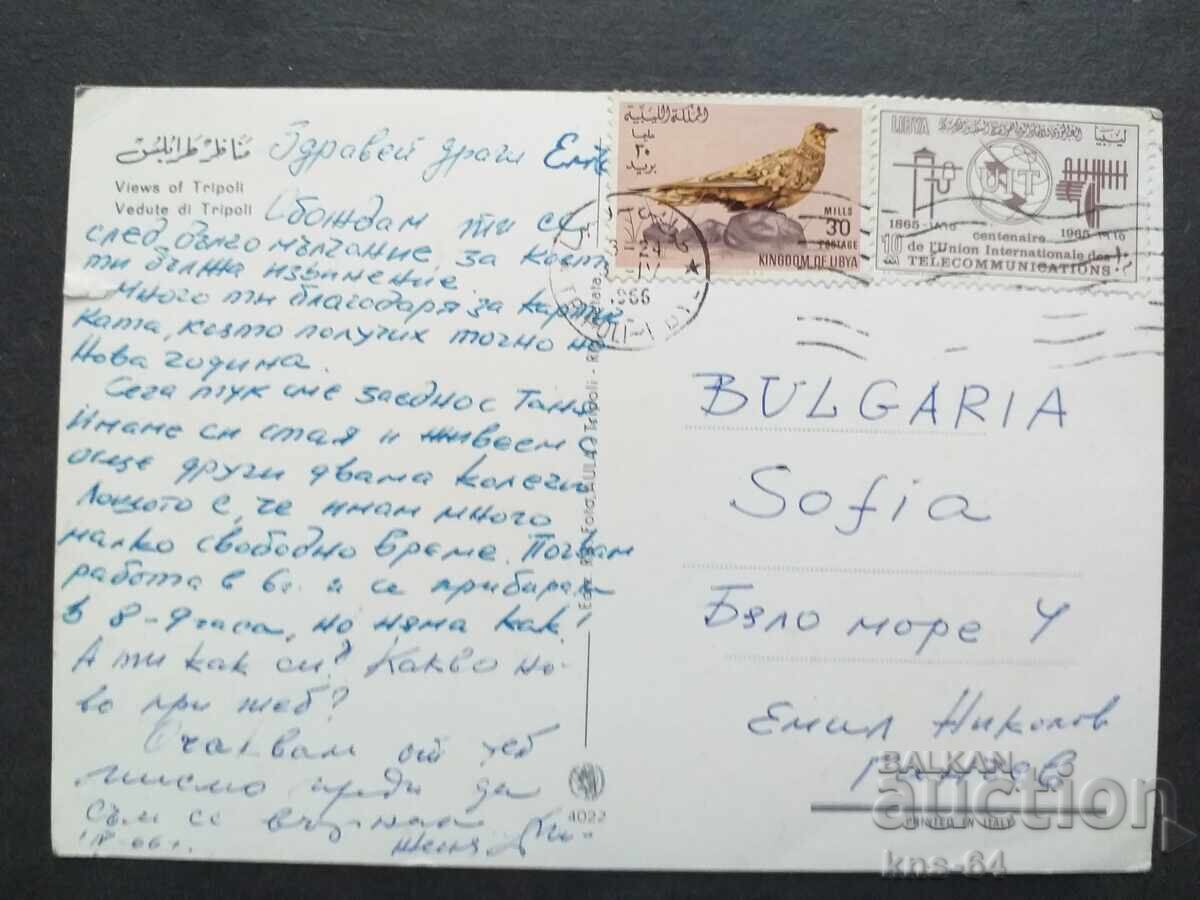 مناظر طرابلس
Views of Tripoli
Vedute di Tripoli
Здравей драги Емил
Обаждам ти се
след дългo мълчание за което
ти дължа извинение.
Много ти благодаря за картич
ката, която получих точно на
Нова година.
Сега тук сме заедно с Таня
Имаме си стая и живеем с
още други двама колеги
Лошото е, че имам много
малко свободно време. Почвам
работа в 6ч. и се прибирам
в 8-9 часа, но няма как.
А ти как си? Какво но-
во при теб?
Очаквам от теб
писмо преди да
съм се върнал
IV 66 г.
4022
المملكة الليبية
مليما
٣٠
بريد
MILLS
30
POSTAGE
KINGDOM OF LIBYA
LIBYA
ليبيا
UIT
1865-
centenaire
1965-
10
de l'Union Internationale des
TELECOMMUNICATIONS
1966
TRIPOLI
BULGARIA
Sofia
Бяло море 4
Емил Николов
PRINTED IN ITALY
BALKAN
auction
kns-64